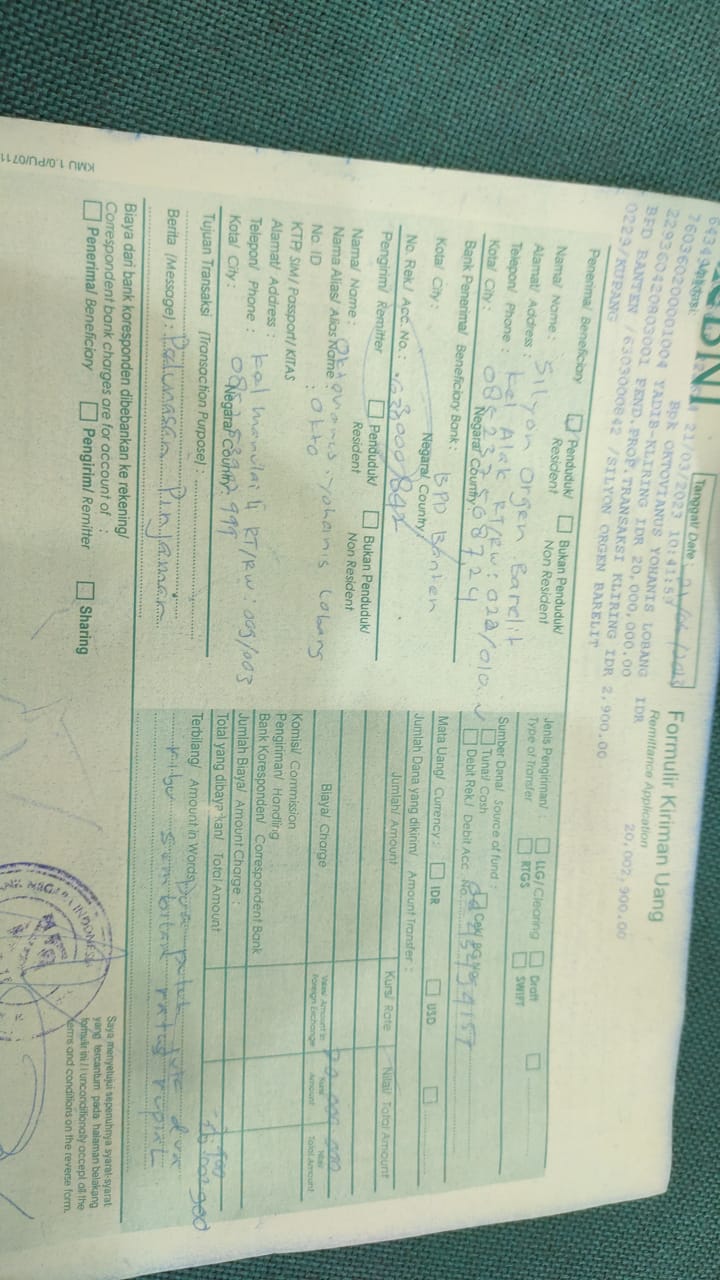 BNI
Tanggal/ Date 21/03/2023
Formulir Kiriman Uang
Remittance Application
21/03/2023 10:41:53
760360200001004 YADIB-KLIRING IDR 20,000,000.00
Bpk OKTOVIANUS YOHANIS LOBANG IDR 20,002,900.00
BPD BANTEN /6303000842 /SILYON ORGEN BARELIT
0223/KUPANG
PEND.PROP.TRANSAKSI KLIRING IDR 2,900.00
Penerima/ Beneficiary
Penduduk/ Resident
Bukan Penduduk/ Non Resident
Nama/ Name : Silyon Orgen Barelit
Alamat/ Address : Kel Alak RT/RW : 022/010
Telepon/ Phone :
Kota/ City : Negara/ Country
Bank Penerima/ Beneficiary Bank : BPD Banten
Kota/ City : Negara/ Country
No. Rek./ Acc. No. : 6303000842
Pengirim/ Remitter
Penduduk/ Resident
Bukan Penduduk/ Non Resident
Nama/ Name : Oktovianus Yohanis Lobang
Nama Alias/ Alias Name : Okto
No. ID
KTP/ SIM/ Passport/ KITAS
Alamat/ Address : Kel manulai II RT/RW : 009/003
Telepon/ Phone :
Kota/ City : Negara/ Country
Tujuan Transaksi (Transaction Purpose) :
Berita (Message) : Pelunasan Pinjaman
Biaya dari bank koresponden dibebankan ke rekening/
Correspondent bank charges are for account of :
Penerima/ Beneficiary
Pengirim/ Remitter
Sharing
KMU 1.0/PU/0711
Jenis Pengiriman/ :
Type of Transfer
LLG/ Clearing
Draft
RTGS
SWIFT
Sumber Dana/ Source of fund :
Tunai/ Cash
Cek/ BG No.
Debit Rek./ Debit Acc No.
Mata Uang/ Currency :
IDR
USD
Jumlah Dana yang dikirim/ Amount Transfer :
Jumlah/ Amount
Kurs/ Rate
Nilai/ Total Amount
20.000.000
Biaya/ Charge
Valas/ Amount in Foreign Exchange
Nilai/ Total Amount
Komisi/ Commission
Pengiriman/ Handling
Bank Koresponden/ Correspondent Bank
Jumlah Biaya/ Amount Charge :
Total yang dibayarkan/ Total Amount
Terbilang/ Amount in Words : Dua puluh juta dua
ribu sembilan ratus rupiah
Saya menyetujui sepenuhnya syarat-syarat
yang tercantum pada halaman belakang
formulir ini / I unconditionally accept all the
terms and conditions on the reverse form.